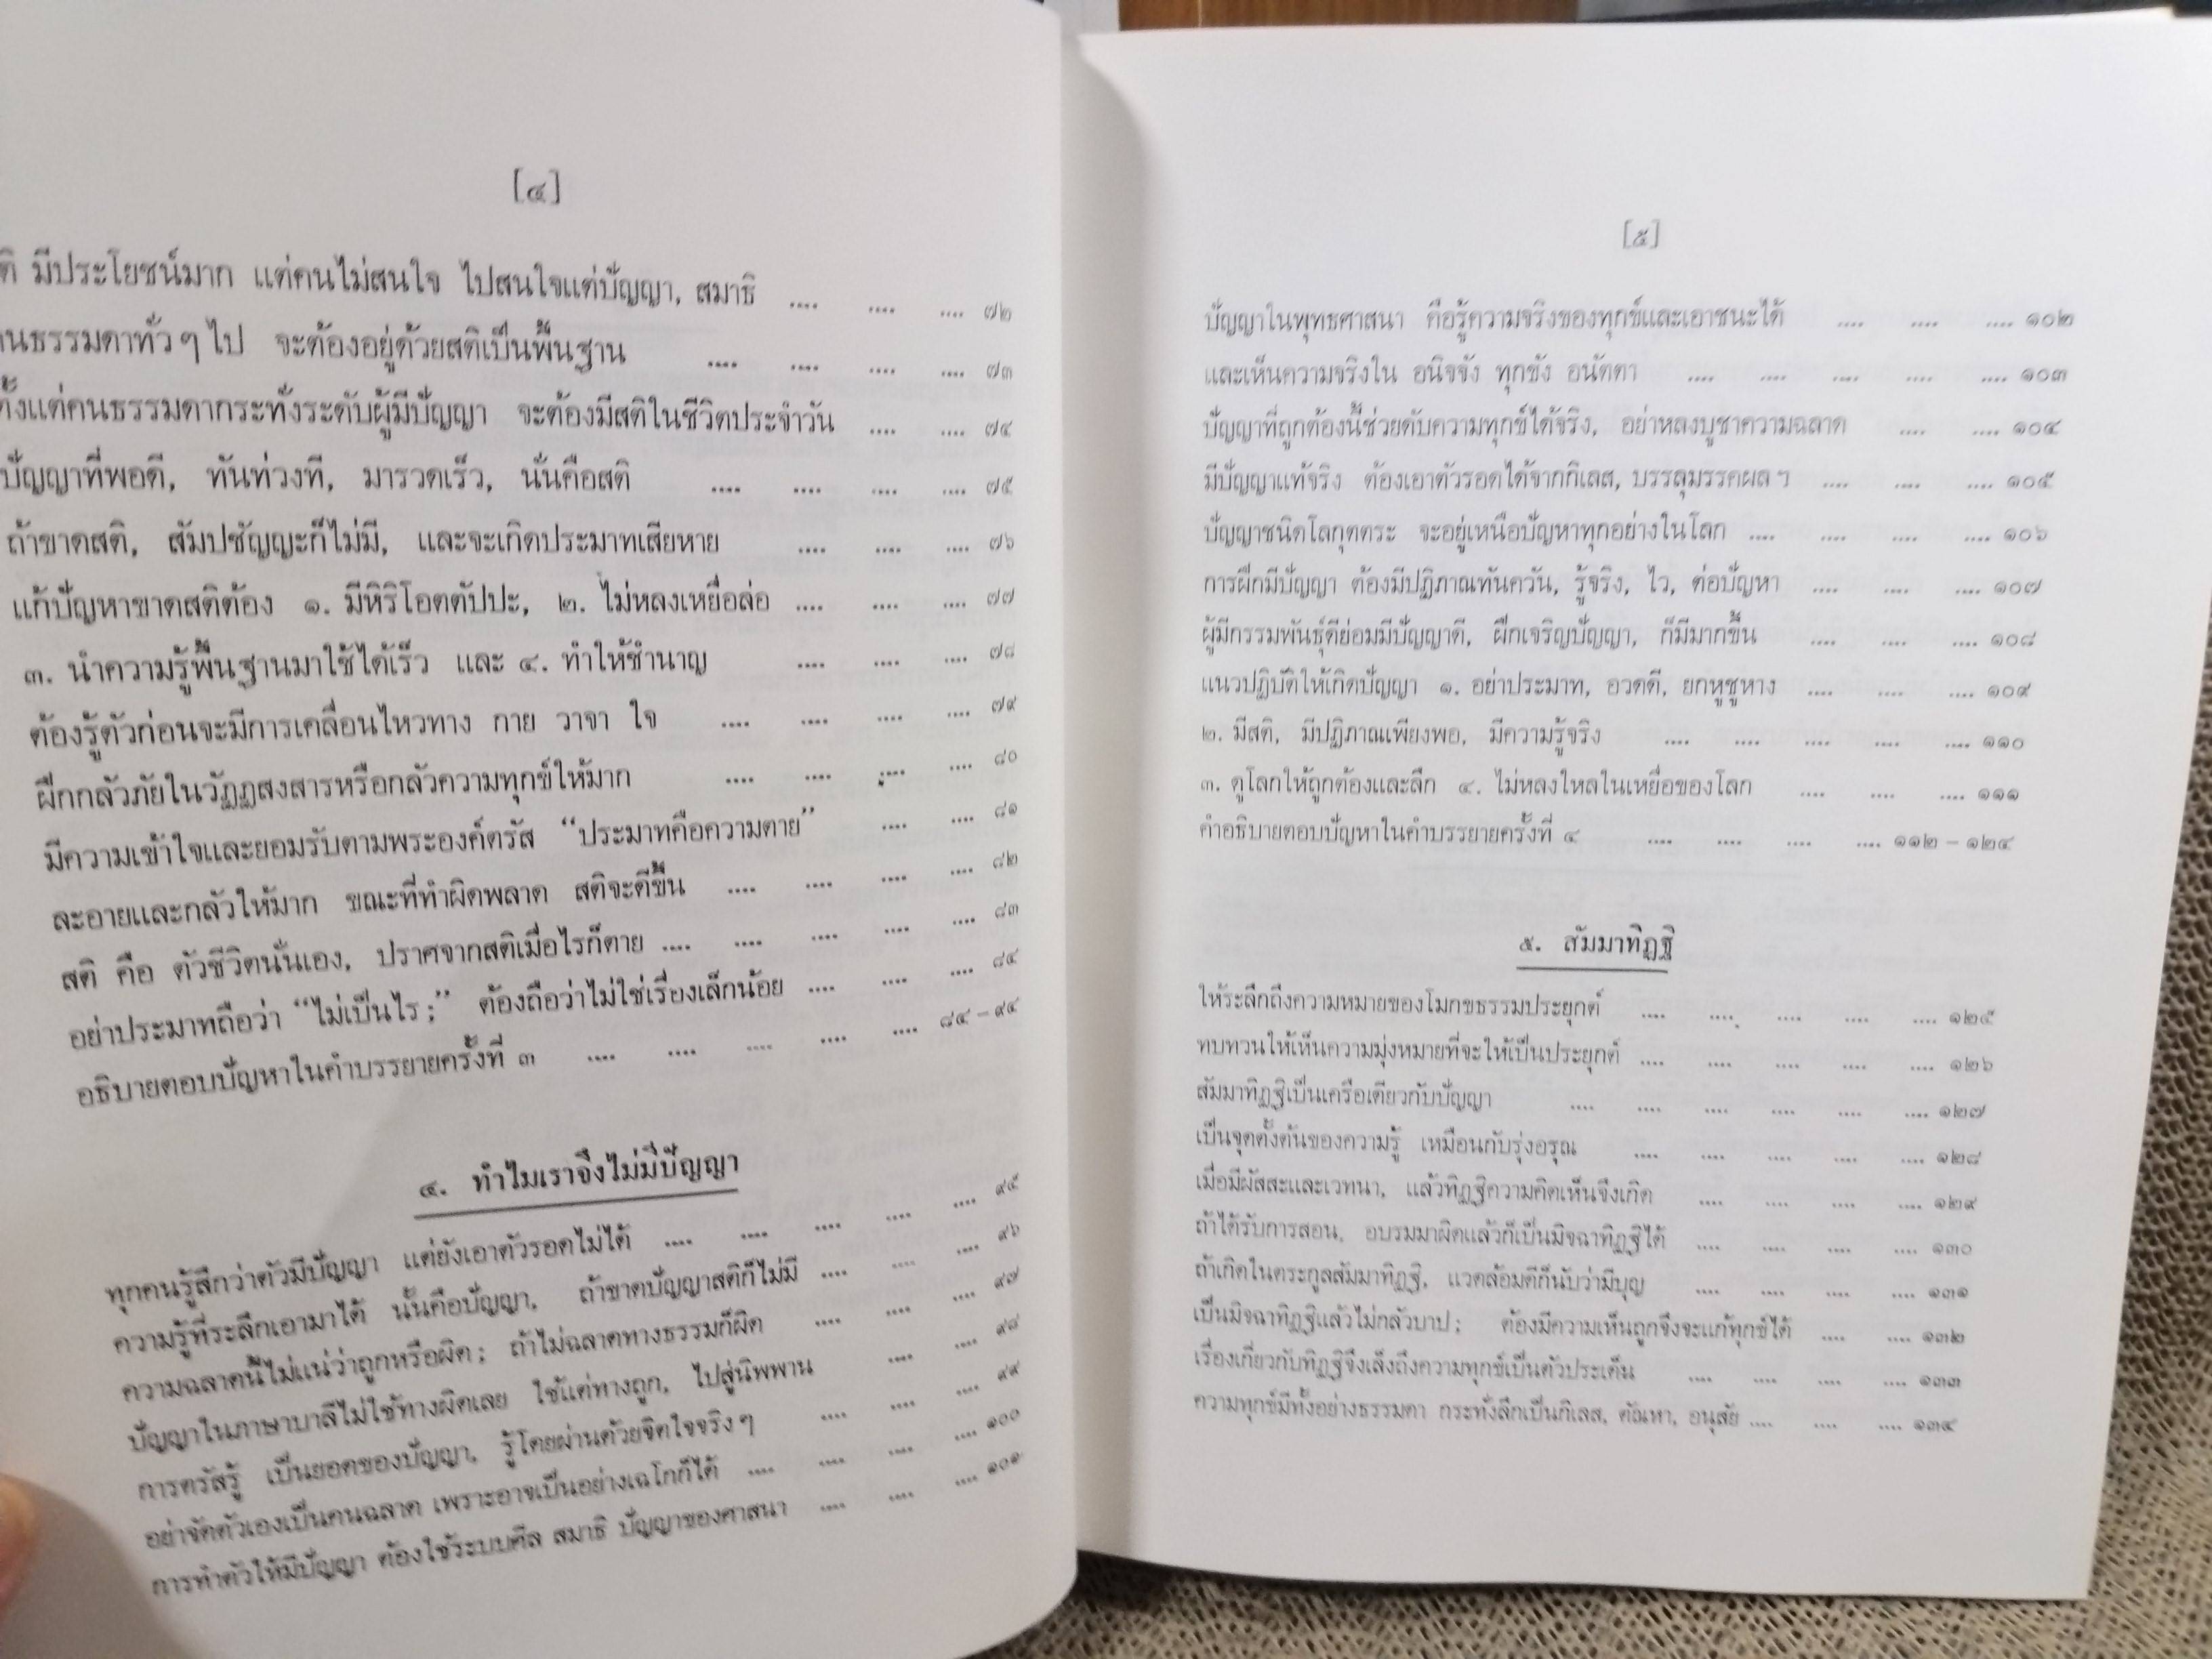 [๔]
มีประโยชน์มาก แต่คนไม่สนใจ ไปสนใจแต่ปัญญา, สมาธิ .... .... .... ๗๒
คนธรรมดาทั่วๆ ไป จะต้องอยู่ด้วยสติเป็นพื้นฐาน .... .... .... .... ๗๓
ตั้งแต่คนธรรมดากระทั่งระดับผู้มีปัญญา จะต้องมีสติในชีวิตประจำวัน .... .... ๗๔
ปัญญาที่พอดี, ทันท่วงที, มารวดเร็ว, นั่นคือสติ .... .... .... .... ๗๕
ถ้าขาดสติ, สัมปชัญญะก็ไม่มี, และจะเกิดประมาทเสียหาย .... .... .... ๗๖
แก้ปัญหาขาดสติต้อง ๑. มีหิริโอตตัปปะ, ๒. ไม่หลงเหยื่อล่อ .... .... .... ๗๗
๓. นำความรู้พื้นฐานมาใช้ได้เร็ว และ ๔. ทำให้ชำนาญ .... .... .... ๗๘
ต้องรู้ตัวก่อนจะมีการเคลื่อนไหวทาง กาย วาจา ใจ .... .... .... .... ๗๙
ฝึกกลัวภัยในวัฏฏสงสารหรือกลัวความทุกข์ให้มาก .... .... .... .... ๘๐
มีความเข้าใจและยอมรับตามพระองค์ตรัส “ประมาทคือความตาย” .... .... ๘๑
ละอายและกลัวให้มาก ขณะที่ทำผิดพลาด สติจะดีขึ้น .... .... .... .... ๘๒
สติ คือ ตัวชีวิตนั่นเอง, ปราศจากสติเมื่อไรก็ตาย .... .... .... .... .... ๘๓
อย่าประมาทถือว่า “ไม่เป็นไร;” ต้องถือว่าไม่ใช่เรื่องเล็กน้อย .... .... .... ๘๔
อธิบายตอบปัญหาในคำบรรยายครั้งที่ ๓ .... .... .... .... .... ๘๔ – ๙๔
๔. ทำไมเราจึงไม่มีปัญญา
ทุกคนรู้สึกว่าตัวมีปัญญา แต่ยังเอาตัวรอดไม่ได้ .... .... .... .... .... ๙๕
ความรู้ที่ระลึกเอามาได้ นั้นคือปัญญา, ถ้าขาดปัญญาสติก็ไม่มี .... .... .... ๙๖
ความฉลาดนี้ไม่แน่ว่าถูกหรือผิด; ถ้าไม่ฉลาดทางธรรมก็ผิด .... .... .... ๙๗
ปัญญาในภาษาบาลีไม่ใช้ทางผิดเลย ใช้แต่ทางถูก, ไปสู่นิพพาน .... .... ๙๘
การตรัสรู้ เป็นยอดของปัญญา, รู้โดยผ่านด้วยจิตใจจริงๆ .... .... .... ๙๙
อย่าจัดตัวเองเป็นคนฉลาด เพราะอาจเป็นอย่างเฉโกก็ได้ .... .... .... .... ๑๐๐
การทำตัวให้มีปัญญา ต้องใช้ระบบศีล สมาธิ ปัญญาของศาสนา .... .... .... ๑๐๑
[๕]
ปัญญาในพุทธศาสนา คือรู้ความจริงของทุกข์และเอาชนะได้ .... .... .... ๑๐๒
และเห็นความจริงใน อนิจจัง ทุกขัง อนัตตา .... .... .... .... .... ๑๐๓
ปัญญาที่ถูกต้องนี้ช่วยดับความทุกข์ได้จริง, อย่าหลงบูชาความฉลาด .... .... ๑๐๔
มีปัญญาแท้จริง ต้องเอาตัวรอดได้จากกิเลส, บรรลุมรรคผลฯ .... .... .... ๑๐๕
ปัญญาชนิดโลกุตตระ จะอยู่เหนือปัญหาทุกอย่างในโลก .... .... .... .... ๑๐๖
การฝึกมีปัญญา ต้องมีปฏิภาณทันควัน, รู้จริง, ไว, ต่อปัญหา .... .... .... ๑๐๗
ผู้มีกรรมพันธุ์ดีย่อมมีปัญญาดี, ฝึกเจริญปัญญา, ก็มีมากขึ้น .... .... .... ๑๐๘
แนวปฏิบัติให้เกิดปัญญา ๑. อย่าประมาท, อวดดี, ยกหูชูหาง .... .... .... ๑๐๙
๒. มีสติ, มีปฏิภาณเพียงพอ, มีความรู้จริง .... .... .... .... .... ๑๑๐
๓. ดูโลกให้ถูกต้องและลึก ๔. ไม่หลงใหลในเหยื่อของโลก .... .... .... ๑๑๑
คำอธิบายตอบปัญหาในคำบรรยายครั้งที่ ๔ .... .... .... .... ๑๑๒ – ๑๒๔
๕. สัมมาทิฏฐิ
ให้ระลึกถึงความหมายของโมกขธรรมประยุกต์ .... .... .... .... .... ๑๒๕
ทบทวนให้เห็นความมุ่งหมายที่จะให้เป็นประยุกต์ .... .... .... .... .... ๑๒๖
สัมมาทิฏฐิเป็นเครือเดียวกับปัญญา .... .... .... .... .... .... ๑๒๗
เป็นจุดตั้งต้นของความรู้ เหมือนกับรุ่งอรุณ .... .... .... .... .... ๑๒๘
เมื่อมีผัสสะและเวทนา, แล้วทิฏฐิความคิดเห็นจึงเกิด .... .... .... .... ๑๒๙
ถ้าได้รับการสอน, อบรมมาผิดแล้วก็เป็นมิจฉาทิฏฐิได้ .... .... .... .... ๑๓๐
ถ้าเกิดในตระกูลสัมมาทิฏฐิ, แวดล้อมดีก็นับว่ามีบุญ .... .... .... .... ๑๓๑
เป็นมิจฉาทิฏฐิแล้วไม่กลัวบาป; ต้องมีความเห็นถูกจึงจะแก้ทุกข์ได้ .... .... ๑๓๒
เรื่องเกี่ยวกับทิฏฐิจึงเล็งถึงความทุกข์เป็นตัวประเด็น .... .... .... .... ๑๓๓
ความทุกข์มีทั้งอย่างธรรมดา กระทั่งลึกเป็นกิเลส, ตัณหา, อนุสัย .... .... .... ๑๓๔